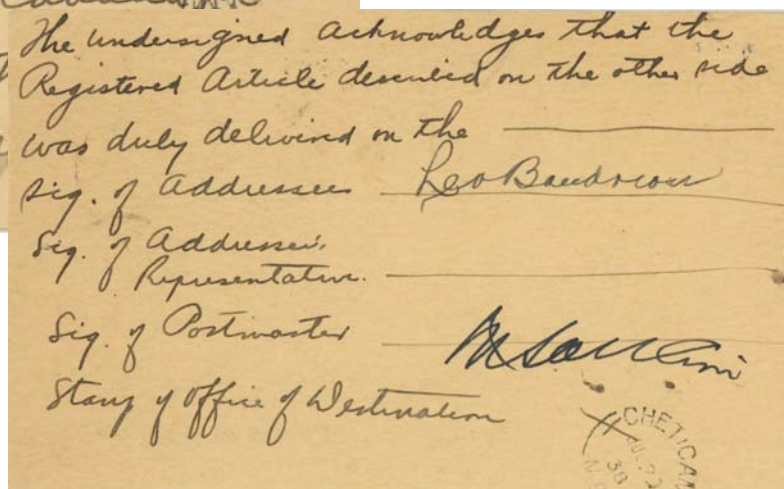 The undersigned Acknowledges that the
Registered Article described on the other side
was duly delivered on the
Sig. of Addressee Leo Boudreau
Sig. of Addressee's
Representative.
Sig. of Postmaster
Stamp of Office of Destination
CHETICAM
38